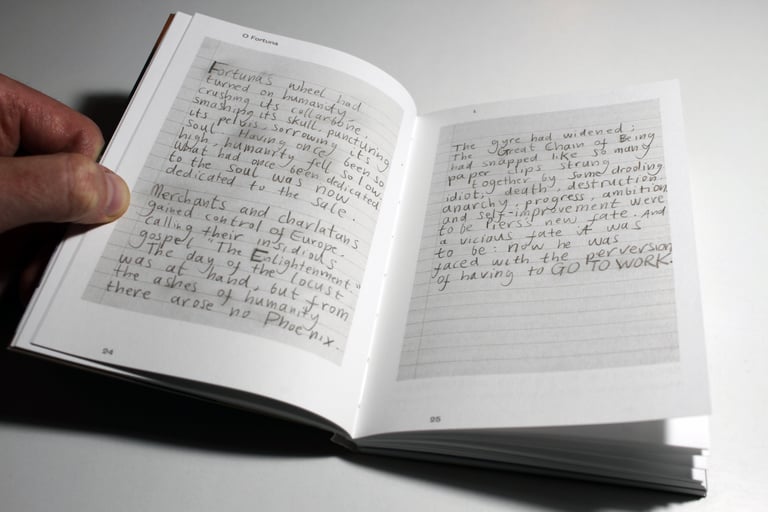 O Fortuna
Fortuna's wheel had
turned on humanity,
crushing its collarbone,
smashing its skull, puncturing
its pelvis, sorrowing its
soul. Having once been so
high, humanity fell so low.
What had once been dedicated
to the soul was now
dedicated to the sale.
Merchants and charlatans
gained control of Europe,
calling their insidious
gospel "The Enlightenment."
The day of the locust
was at hand, but from
the ashes of humanity
there arose no Phoenix.
24
The gyre had widened;
The Great Chain of Being
had snapped like so many
paper clips strung
together by some drooling
idiot; death, destruction,
anarchy, progress, ambition
and self-improvement were
to be Pierss new fate. And
a vicious fate it was
to be: now he was
faced with the perversion
of having to GO TO WORK.
25